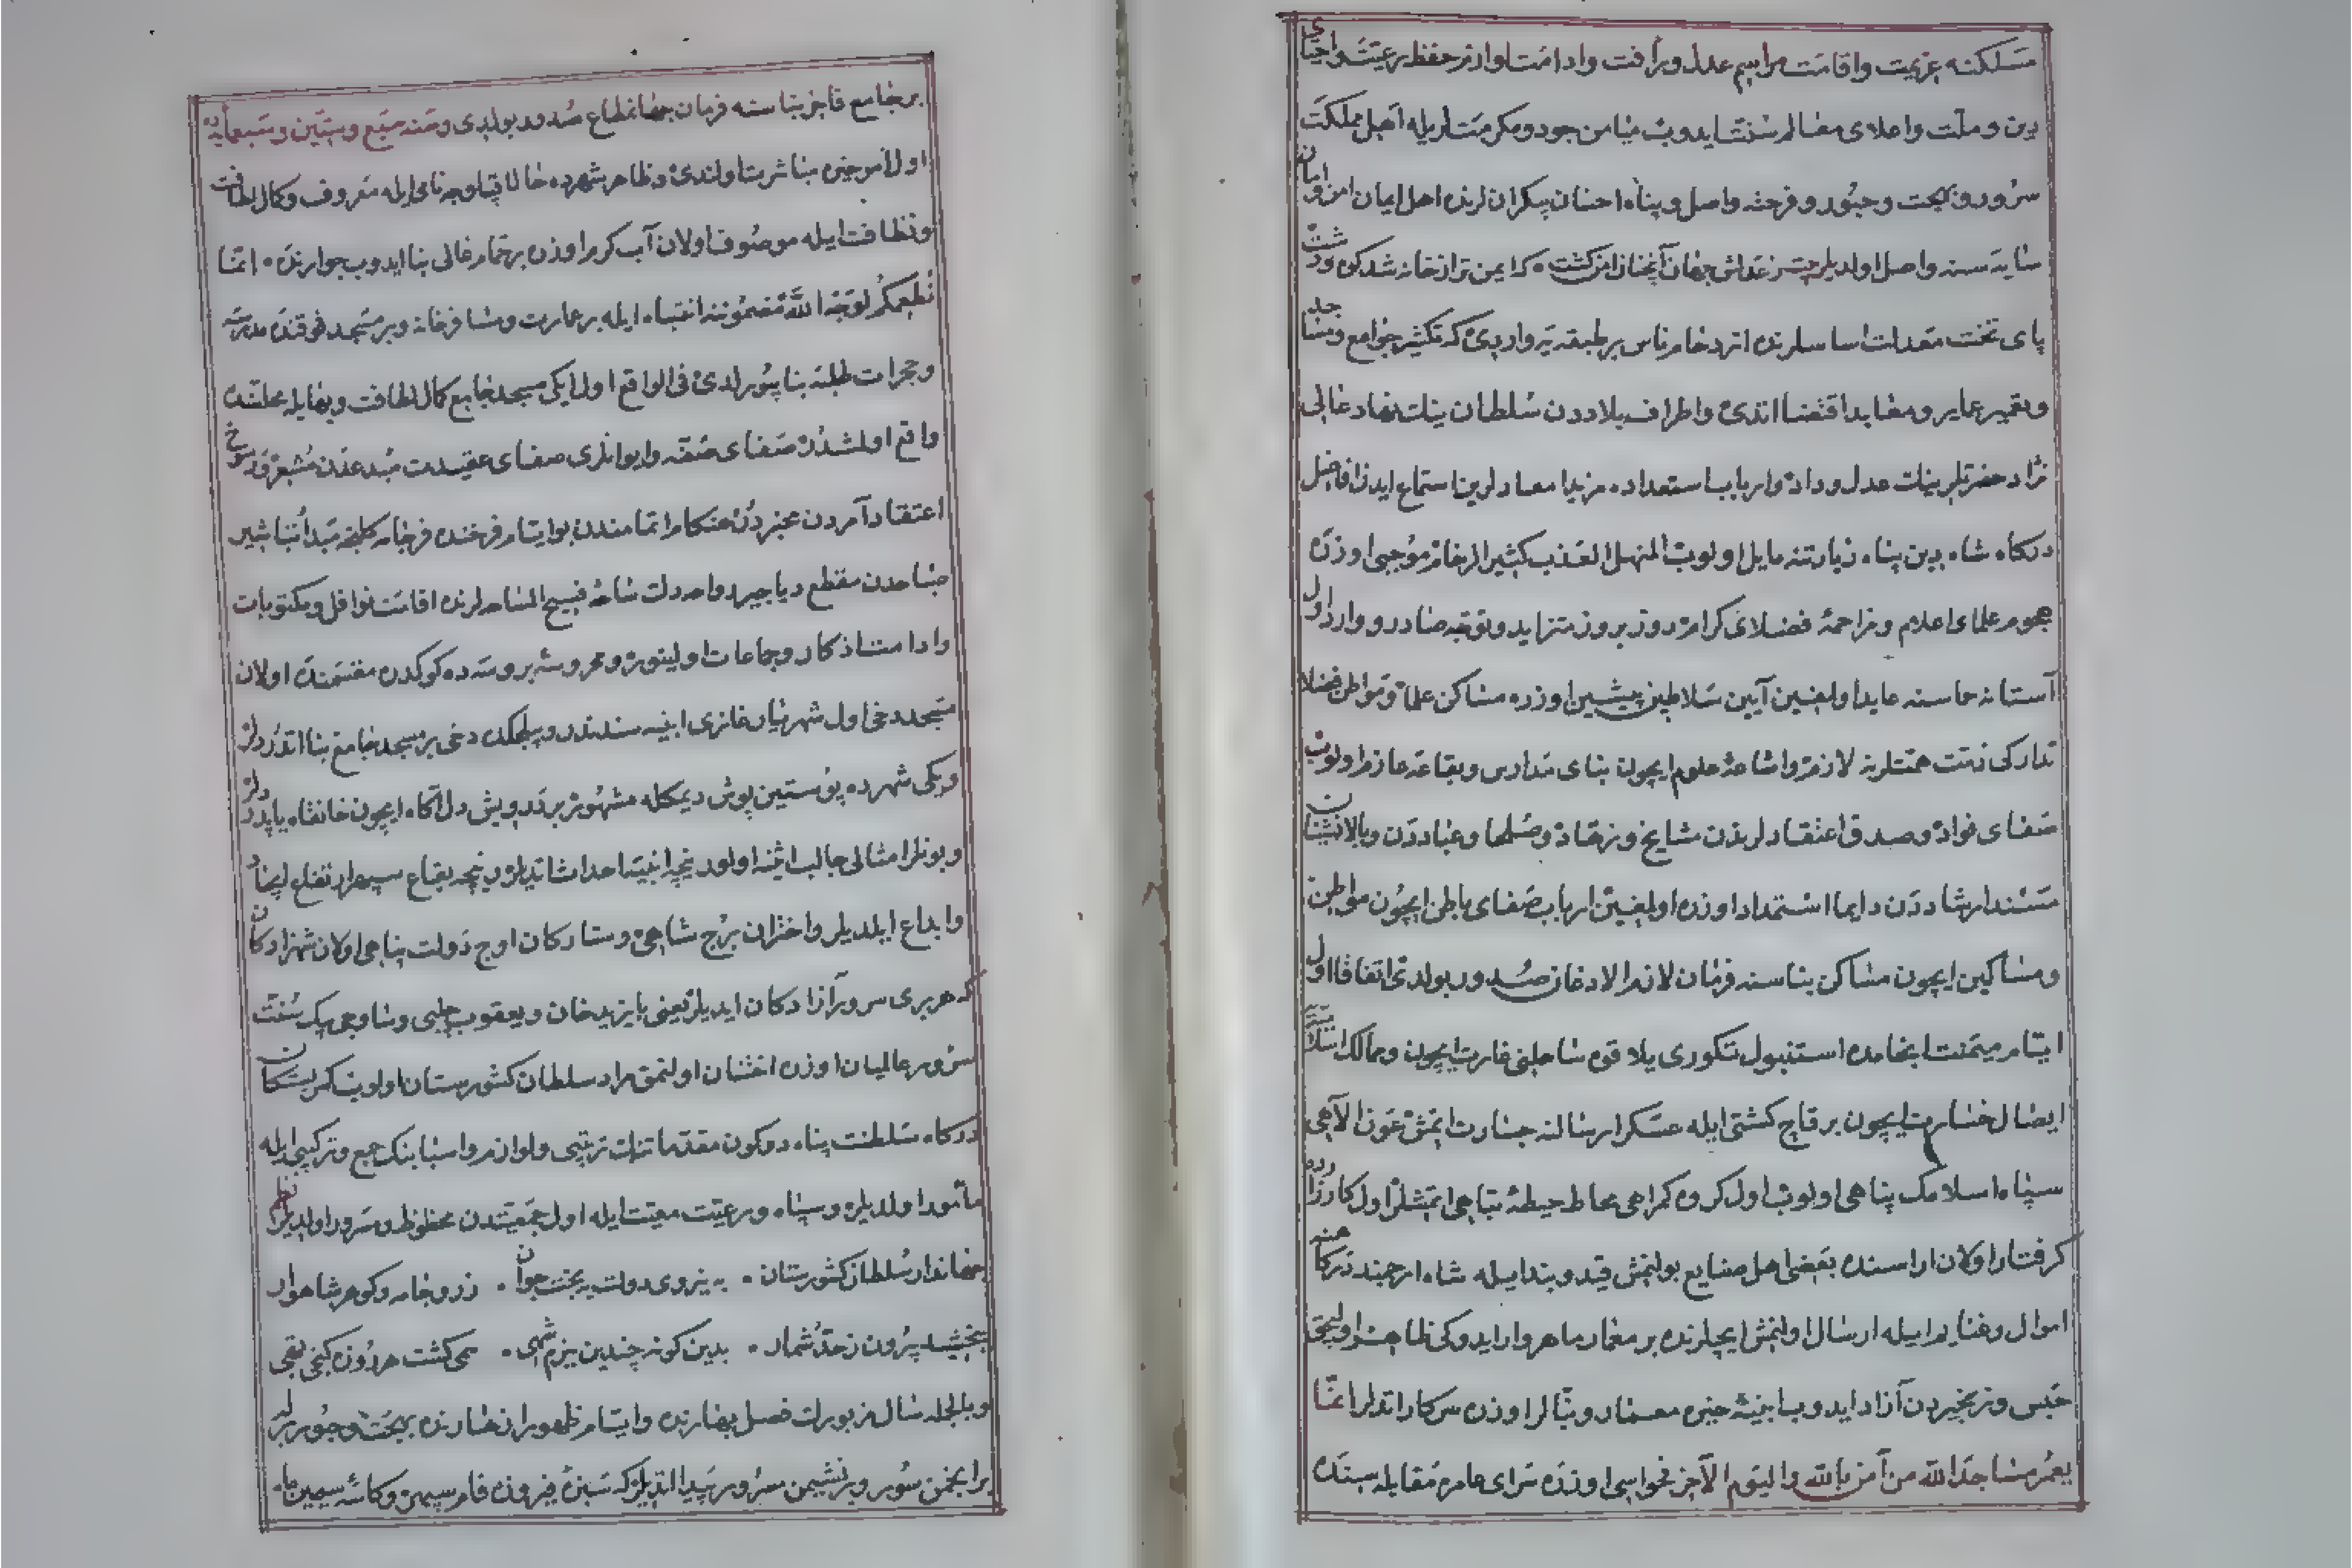 مسلكنه عزيمت واقامت مراسم عدل ورأفت وادامت لوازم حفظ رعيت واحياى
دين وملت واعلاى معالم سنت ايدوب ميامن جود ومكرمتلريله اهل مملكت
سرور وبهجت وحبور وفرحته واصل وپناه احسان بيكرانلرنده اهل ايمان امن وامان
سايه سنه واصل اولديلر بيت زعدلش جهان آنچنان امن كشت كه ايمن تر از خانه شد كوه ودشت
پاى تخت معدلت اساسلرنده ازدحام ناس بر طبقه يه واردى كه تكثير جوامع ومساجد
وتعمير عماير ومعابد اقتضا اتدى واطراف بلاددن سلطان نيك نهاد عالى
نژاد حضرتلرينك عدل وداد وارباب استعداده مزيد اسعادلرين استماع ايدن افاضل
دركاه شاه دين پناه زيارتنه مايل اولوب المنهل العذب كثير الزحام موجبى اوزره
هجوم علماى اعلام ومزاحمة فضلاى كرام روز بروز متزايد وتوجه صادر ووارد اول
آستانه يه عايد اولمغين آيين سلاطين پيشين اوزره مساكن علما ومواطن فضلا
تداركى ذمت همتلرينه لازم واشاعة علوم ايچون بناى مدارس وبقاعه عازم اولوب
صفاى فواد وصدق اعتقادلرندن مشايخ وزهاد وصلحا وعباددن وبالانشينان
مسند ارشاددن دايما استمداد اوزره اولمغين ارباب صفاى باطن ايچون مواطن
ومساكين ايچون مساكن بناسنه فرمان لازم الاذعان صدور بولدى اتفاقا اول
ايام ميمنت انجامده استنبول تكورى يلاقوه ساحلنى غارت ايچون وممالك اسلاميه يه
ايصال خسارت ايچون بر قاچ كشتى ايله عسكر ارسالنه جسارت اتمش عون الآهى
سپاه اسلامك پناهى اولوب اول كروه كمراهى محاط حيطة تباهى اتمشلر اول كارزارده
كرفتار اولان اراسنده بعضى اهل صنايع بولنمش قيد وبند ايله شاه ارجمند دركاهنه
اموال وغنايم ايله ارسال اولنمش ايچلرنده بر معمار ماهر وار ايدوكى ظاهر اوليجق
حبس وزنجيردن آزاد ايدوب ابنية خيره معمار وبنالر اوزره سركار اتديلر انما
يعمر مساجد الله من آمن بالله واليوم الآخر فحواسى اوزره سراى عامره مقابله سنده
بر جامع فاخر بناسنه فرمان جهانمطاع صدور بولدى وسنه سبع وستين وسبعمايه ده
اول امر خيره مباشرت اولندى وظاهر شهرده حالا قپلوجه نامى ايله معروف وكمال لطافت
ونظافت ايله موصوف اولان آب كرم اوزره بر حمام عالى بنا ايدوب جوارنده انما
نطعمكم لوجه الله مضمونندن انتباه ايله بر عمارت ومسافرخانه وبر مسجد فوقنده مدرسه
وحجرات طلبه بنا بيورلدى فى الواقع اول ايكى مسجد جامع كمال لطافت وبها ايله محلنده
واقع اولمشدر صفاى صفه وايوانلرى صفاى عقيدت مبدعندن مشعر ورسوخ
اعتقاد آمردن مخبردر هنكام اتمامندن بو ايام فرخنده فرجامه كلنجه مبدأ تباشير
صباحدن مقطع دياجير رواحه دك ساحة فسيح المساحه لرنده اقامت نوافل ومكتوبات
وادامت اذكار وجماعات اولينور ومحروسه بروسه ده كوكدره مقسمنده اولان
مسجد دخى اول شهريار غازى ابنيه سندندر وبيلجكده دخى بر مسجد جامع بنا اتدرديلر
ويكى شهرده پوستين پوش ديمكله مشهور بر درويش دل آكاه ايچون خانقاه ياپدرديلر
وبونلر امثالى جالب اثنه اولور نيچه ابنيه احداث اتديلر ونيچه بقاع سپهر ارتفاع ايجاد
وابداع ايلديلر واختران برج شاهى وستاركان اوج دولت پناهى اولان شهزادكان
كه هر برى سرور آزادكان ايديلر يعنى بايزيد خان ويعقوب چلبى وساوجى بيك سنت
سرور عالميان اوزره اختتان اولنمق مراد سلطان كشورستان اولوب كمر بستكان
دركاه سلطنت پناه دوكون مقدماتنك ترتيبى ولوازم واسبابنك جمع وتركيبى ايله
مأمور اولديلر وسپاه ورعيت معيت ايله اول جمعيتدن محظوظ ومسرور اولديلر نظم
جهاندار سلطان كشورستان . به نيروى دولت به بخت جوان . زر وجامه وكوهر شاهوار
ببخشيد بيرون زحد شمار . بدين كونه چندين بزم شهى . همى كشت هر روزه كنجى تهى
وبالجمله سال مزبورك فصل بهارنده وايام ظهور ازهارنده بهجت وحبورلر
بر انجمن سور وبر نشيمن سرور پيدا اتديلر كه سبزه فيروزه فام سپهر وكاسه سيمين ماه